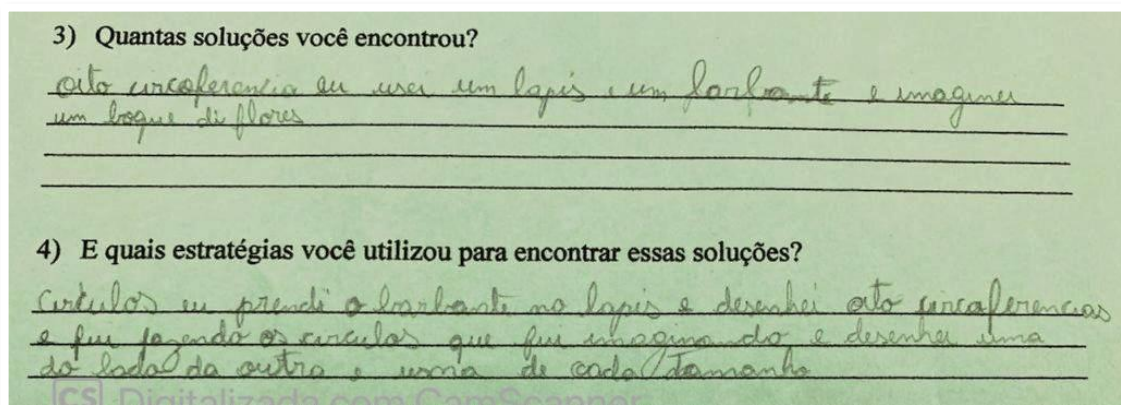 3) Quantas soluções você encontrou?
oito circoferencia eu usei um lapis e um barbante e imaginei
um boque di flores
4) E quais estratégias você utilizou para encontrar essas soluções?
Circulos eu prendi o barbante no lapis e desenhei oito circoferencias
e fui fazendo os circulos que fui imaginando e desenhei uma
do lado da outra e uma de cada tamanho
CS Digitalizada com CamScanner